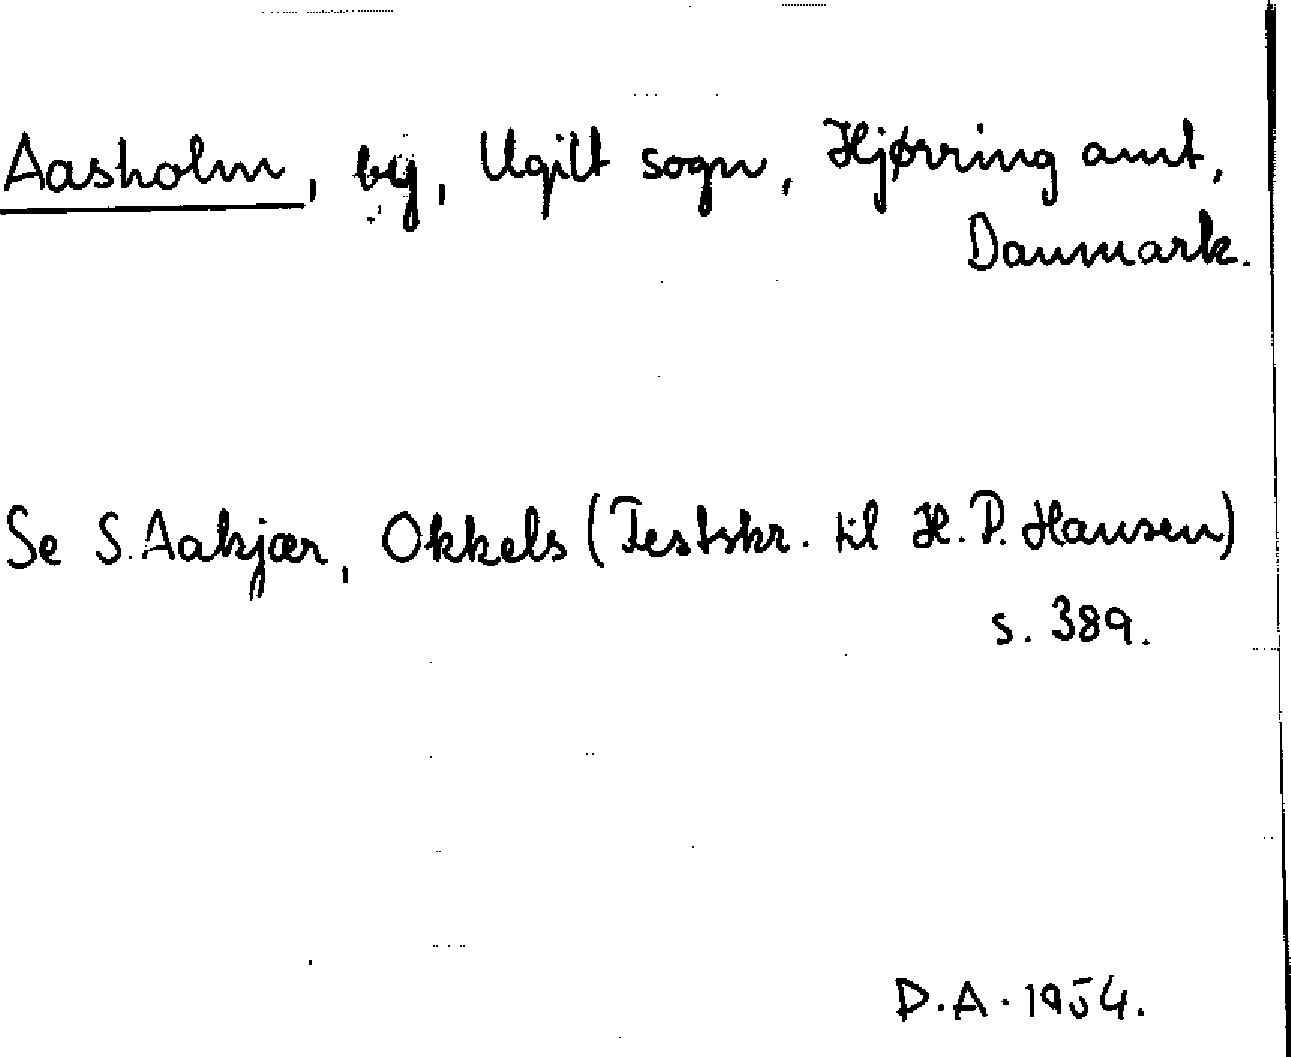 Aasholm, by, Ugilt sogn, Hjørring amt,
Danmark.
Se S. Aakjær, Okkels (Festskr. til H. P. Hansen)
s. 389.
D. A. 1954.